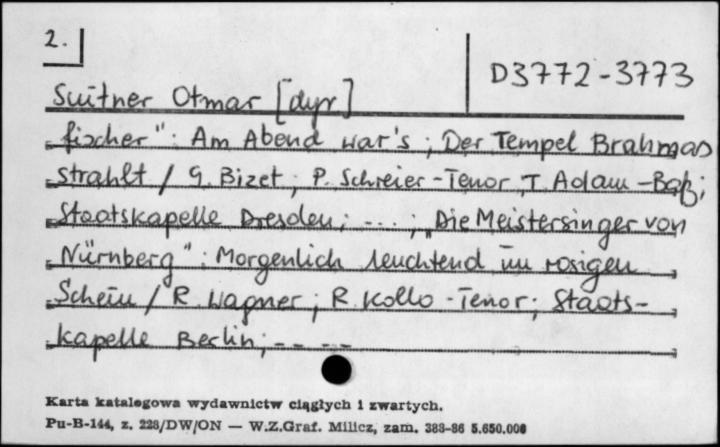 2.
D3772-3773
Suitner Otmar [dyr]
fischer": Am Abend war's ; Der Tempel Brahmas
strahlt / G. Bizet ; P. Schreier-Tenor, T. Adam -Baß;
Staatskapelle Dresden; - - - ; „Die Meistersinger von
Nürnberg": Morgenlich leuchtend im rosigen
Schein / R. Wagner ; R. Kollo -Tenor; Staats-
kapelle Berlin; - - - -
Karta katalogowa wydawnictw ciągłych i zwartych.
Pu-B-144, z. 228/DW/ON — W.Z.Graf. Milicz, zam. 388-86 5.650.000